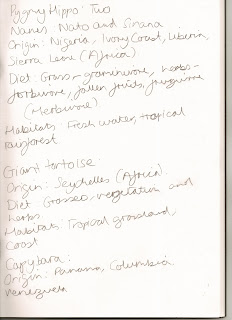 Pygmy Hippo: Two
Names, Nato and Sirana
Origin: Nigeria, Ivory Coast, Liberia,
Sierra Leone (Africa)
Diet: Grass - graminivore, herbs -
forbivore, fallen fruits, frugivore
(Herbivore)
Habitats: Fresh water, tropical
rainforest
Giant tortoise:
Origin: Seychelles (Africa)
Diet: Grasses, vegetation and
herbs.
Habitats: Tropical grassland,
Coast
Capybara:
Origin: Panama, Columbia,
Venezuela